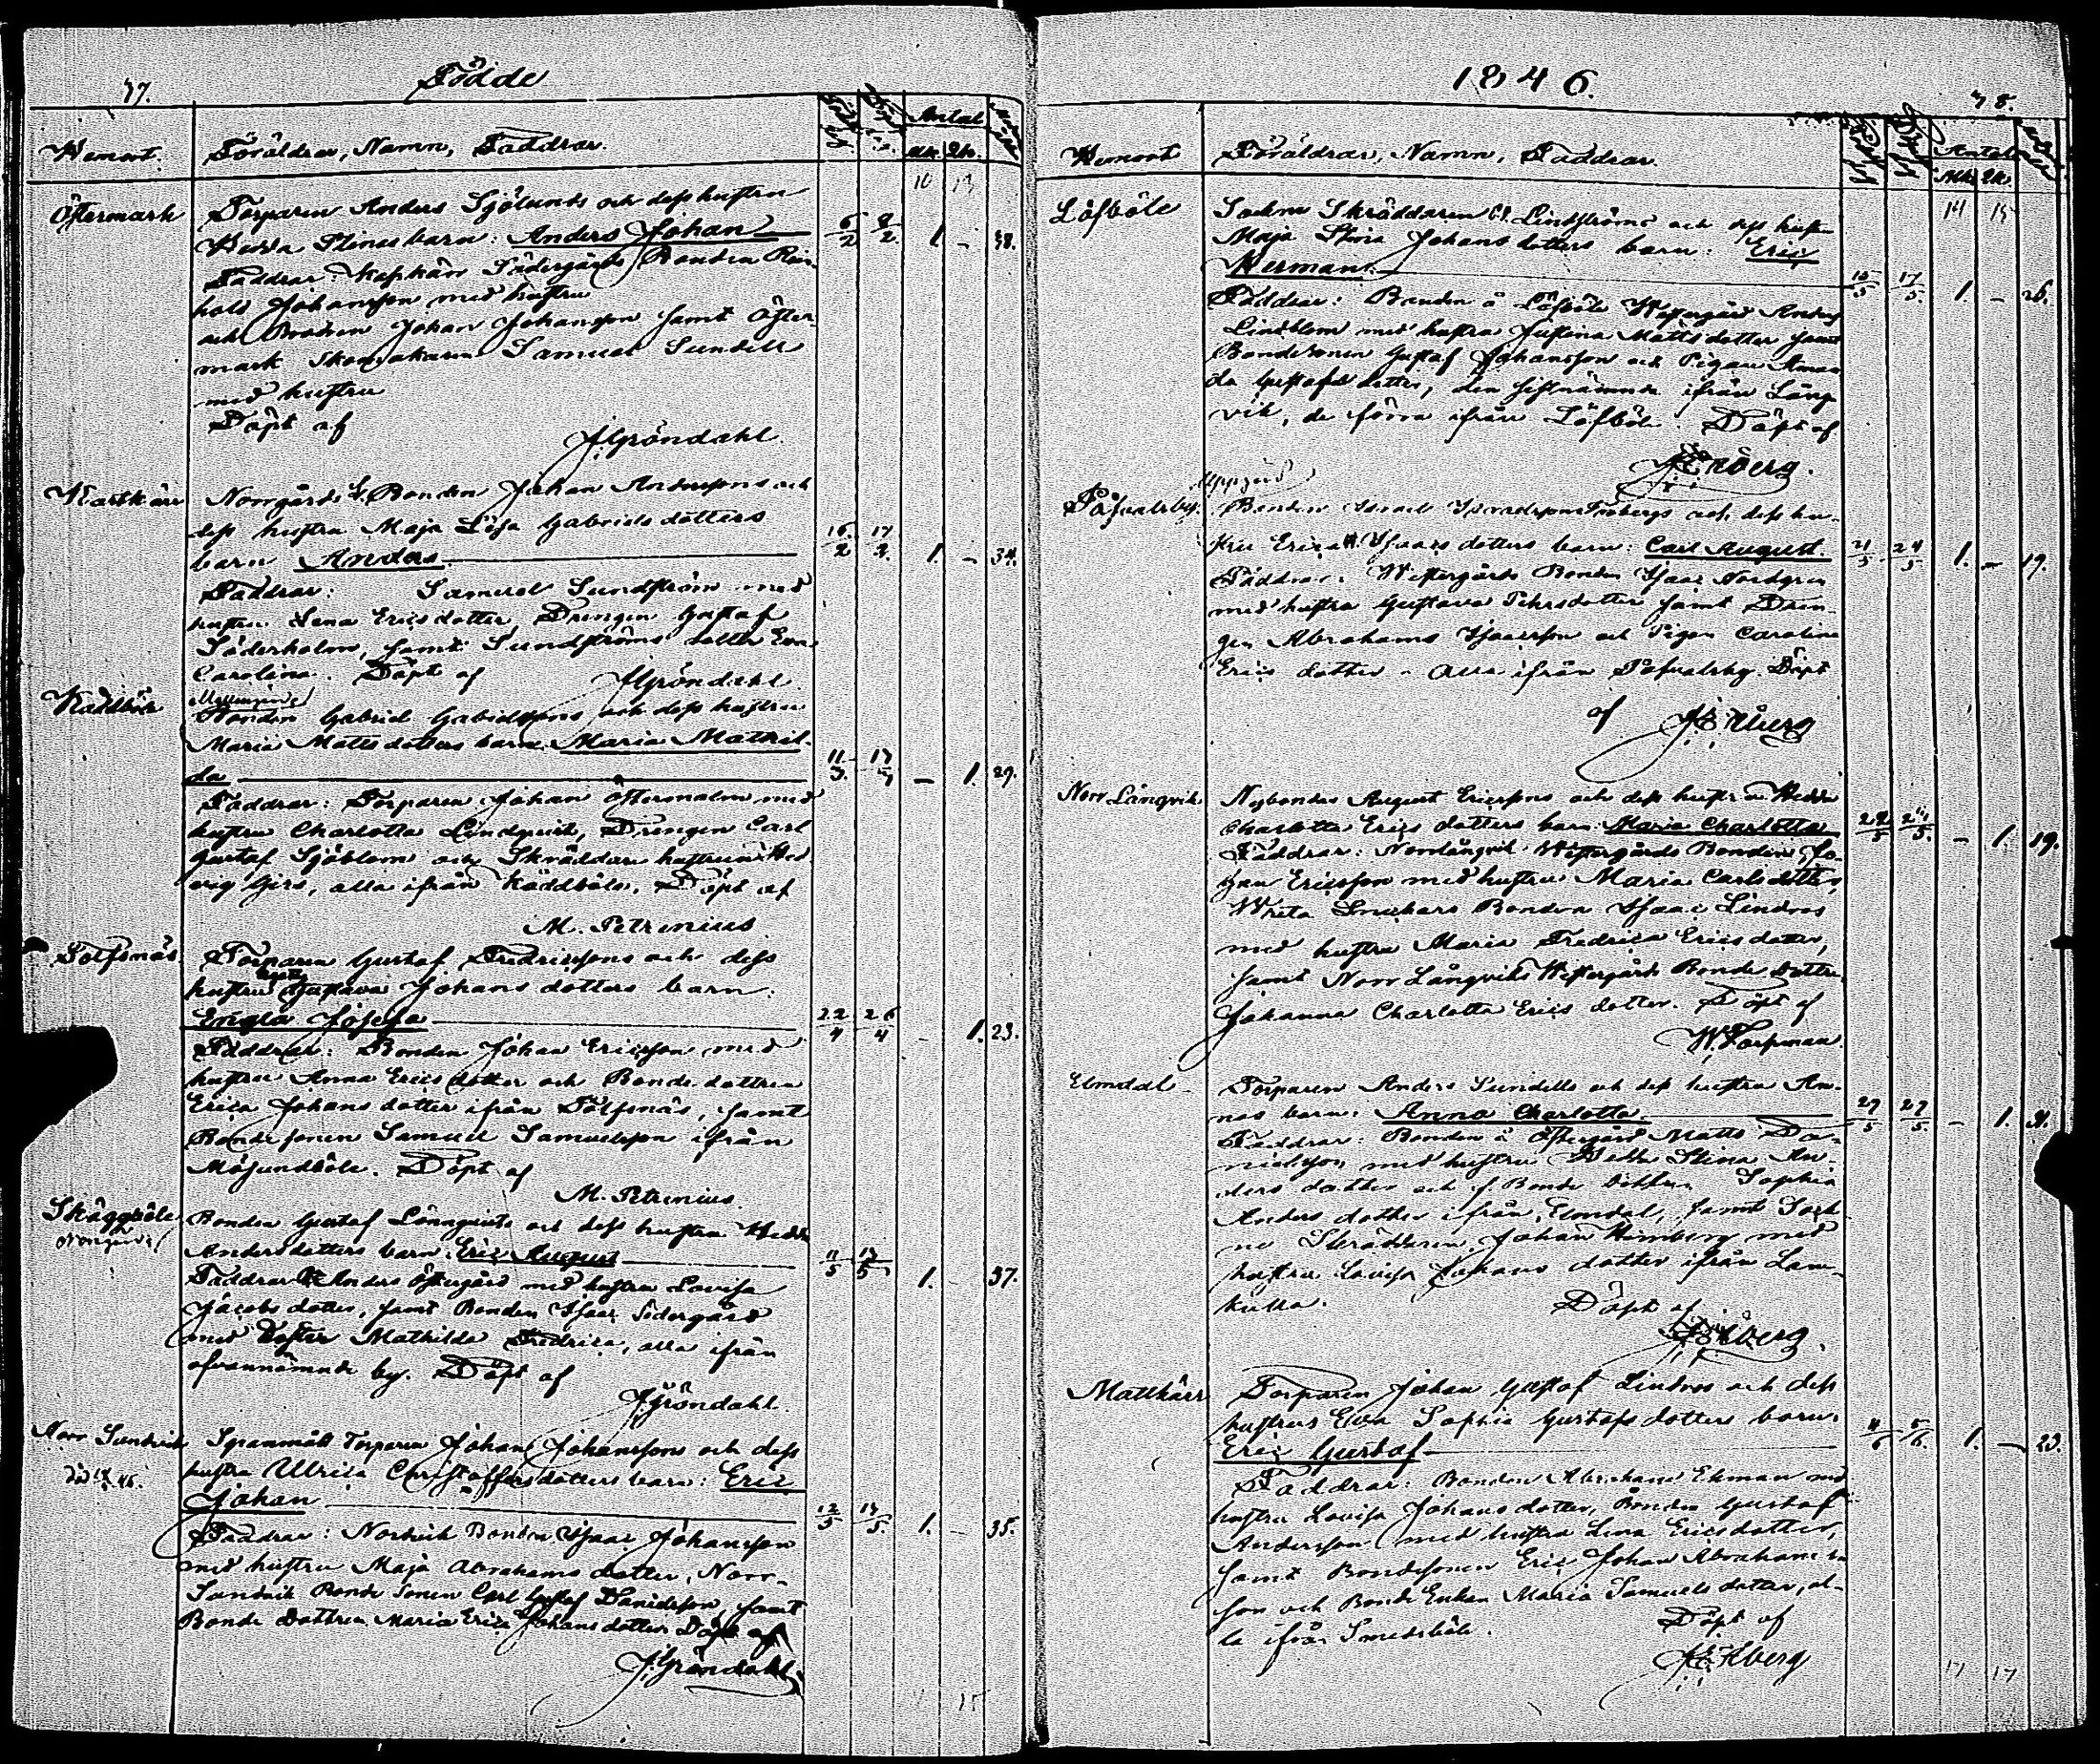 37.
Födde
Hemort.
Föräldrar, Namn, Faddrar.
Antal
Mk. Qk.
10 13
Östermark
Torparen Anders Sjölunds och dess hustru
Hedda Stinas barn: Anders Johan
6/2 8/2 1. - 38.
Faddrar: Södergårds Bonden Rein-
hold Johansson med hustru
och Brodren Johan Johansson samt Öster-
mark Skomakaren Samuel Sundell
med hustru
Döpt af
J. Gröndahl.
Kartkärr
Norrgårds Bonden Johan Anderssons och
dess hustru Maja Lisa Gabriels dotters
barn Anders
16/2 17/2. 1. - 34.
Faddrar: Samuel Sundström med
hustru Lena Erics dotter Drengen Gustaf
Söderholm, samt Sundströms dotter Eva
Carolina. Döpt af J. Gröndahl.
Kaddböle
Bonden Gabriel Gabrielssons och dess hustru
Maria Matts dotters barn Maria Mathil-
da
- 1. 29.
Faddrar: Torparen Johan Östermalm med
hustru Charlotta Lindqvist, Drengen Carl
Gustaf Sjöblom och Skräddare hustrun Hed-
vig Girs, alla ifrån Käddböle. Döpt af
M. Petrenius.
Tolfsnäs
Torparen Gustaf Fredricssons och dess
hustru Gustava Johans dotters barn:
Engla Josefa
22/4 26/4 - 1. 23.
Faddrar: Bonden Johan Ericsson med
hustru Anna Erics dotter och Bonde dottren
Erica Johans dotter ifrån Tolfsnäs, samt
Bonde sonen Samuel Samuelsson ifrån
Mösundböle. Döpt af
M. Petrenius.
Skäggböle
Norrgård
Bonden Gustaf Lönnqvists och dess hustru Hedda
Andersdotters barn Eric August
11/5 1. 37.
Faddrar Anders Östergård med hustru Lovisa
Jacobs dotter, samt Bonden Isaac Södergård
med Doter Mathilda Fredrica, alla ifrån
ofvannämnde by. Döpt af
J. Gröndahl.
Norr Sundvik
Spanmåls Torparen Johan Johanssons och dess
hustru Ulrica Christoffersdotters barn: Eric
Johan
12/5 1. 35.
Faddrar: Nordvik Bonden Isaac Johansson
med hustru Maja Abrahams dotter, Norr-
Sundvik Bonde Sonen Carl Gustaf Danielsson, samt
Bonde Dottren Maria Erica Johans dotter Döpt af
J. Gröndahl.
15
1846.
38.
Hemort
Föräldrar, Namn, Faddrar
Antal
Mk. Qk.
14 15
Löfböle
Sockne Skräddaren Lindströms och dess hustru
Maja Stina Johans dotters barn: Eric
Herman.
15/5 17/5. 1. - 26.
Faddrar: Bonden å Löfböle Westergård Anders
Lindblom med hustru Justina Matts dotter samt
Bondesonen Gustaf Johansson och Pigan Aman-
da Gustafs dotter, den sistnämnda ifrån Lång-
vik, de förra ifrån Löfböle. Döpt af
Påfvalsby.
Uppgård
Bonden Israel Israelsson Frobergs och dess hu-
stru Erica Isaacs dotters barn: Carl August.
21/5 24/5 1. - 19.
Faddrar: Westergårds Bonden Isaac Nordgren
med hustru Gustava Pehrsdotter samt Dren-
gen Abrahams Isaacsson och Pigan Carolina
Erics dotter - alla ifrån Påfvalsby. Döpt
af
Norr Långvik
Nybondes August Ericssons och dess hustru Hedda
Charlotta Erics dotters barn Maria Charlotta
22/5 24/5. - 1. 19.
Faddrar: Norrlångvik Westergårds Bonden Jo-
han Ericsson med hustru Maria Carls dotter,
Wreta Smickars Bonden Isaac Lindroos
med hustru Maria Fredrica Erics dotter,
samt Norr Långviks Westergårds Bonde Dotter
Johanna Charlotta Erics dotter. Döpt af
W. Forsman.
Elmdal
Torparen Anders Sundells och dess hustru An-
nas barn. Anna Charlotta.
27/5 27/5 - 1. 31.
Faddrar: Bonden å Östergård Matts Da-
nielsson med hustru Hedda Stina An-
ders dotter och f. Bonde Dottren Sophia
Anders dotter ifrån Elmdal, samt Sock-
ne Skräddaren Johan Himberg med
hustru Lovisa Johans dotter ifrån Lam-
kulla. Döpt af
Mattkärr
Torparen Johan Gustaf Lindroos och dess
hustrus Eva Sophia Gustafs dotters barn
Eric Gustaf
4/6 5/6. 1. - 23.
Faddrar: Bonden Abraham Ekman med
hustru Lovisa Johans dotter, Bonden Gustaf
Andersson med hustru Lena Ericsdotter,
samt Bondesonen Eric Johan Abrahams
son och Bonde Enkan Maria Samuels dotter, al-
la ifrån Smedsböle. Döpt af
17 17